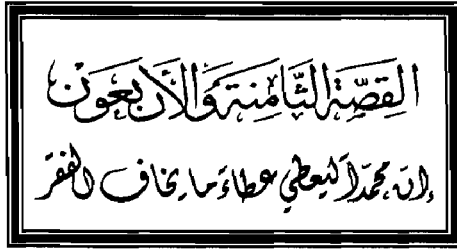 القِصَّةُ الثَّامِنَةُ وَالأَرْبَعُون
إِنَّ مُحَمَّداً لَيُعْطِي عَطَاءَ مَا يَخَافُ الفَقْرَ